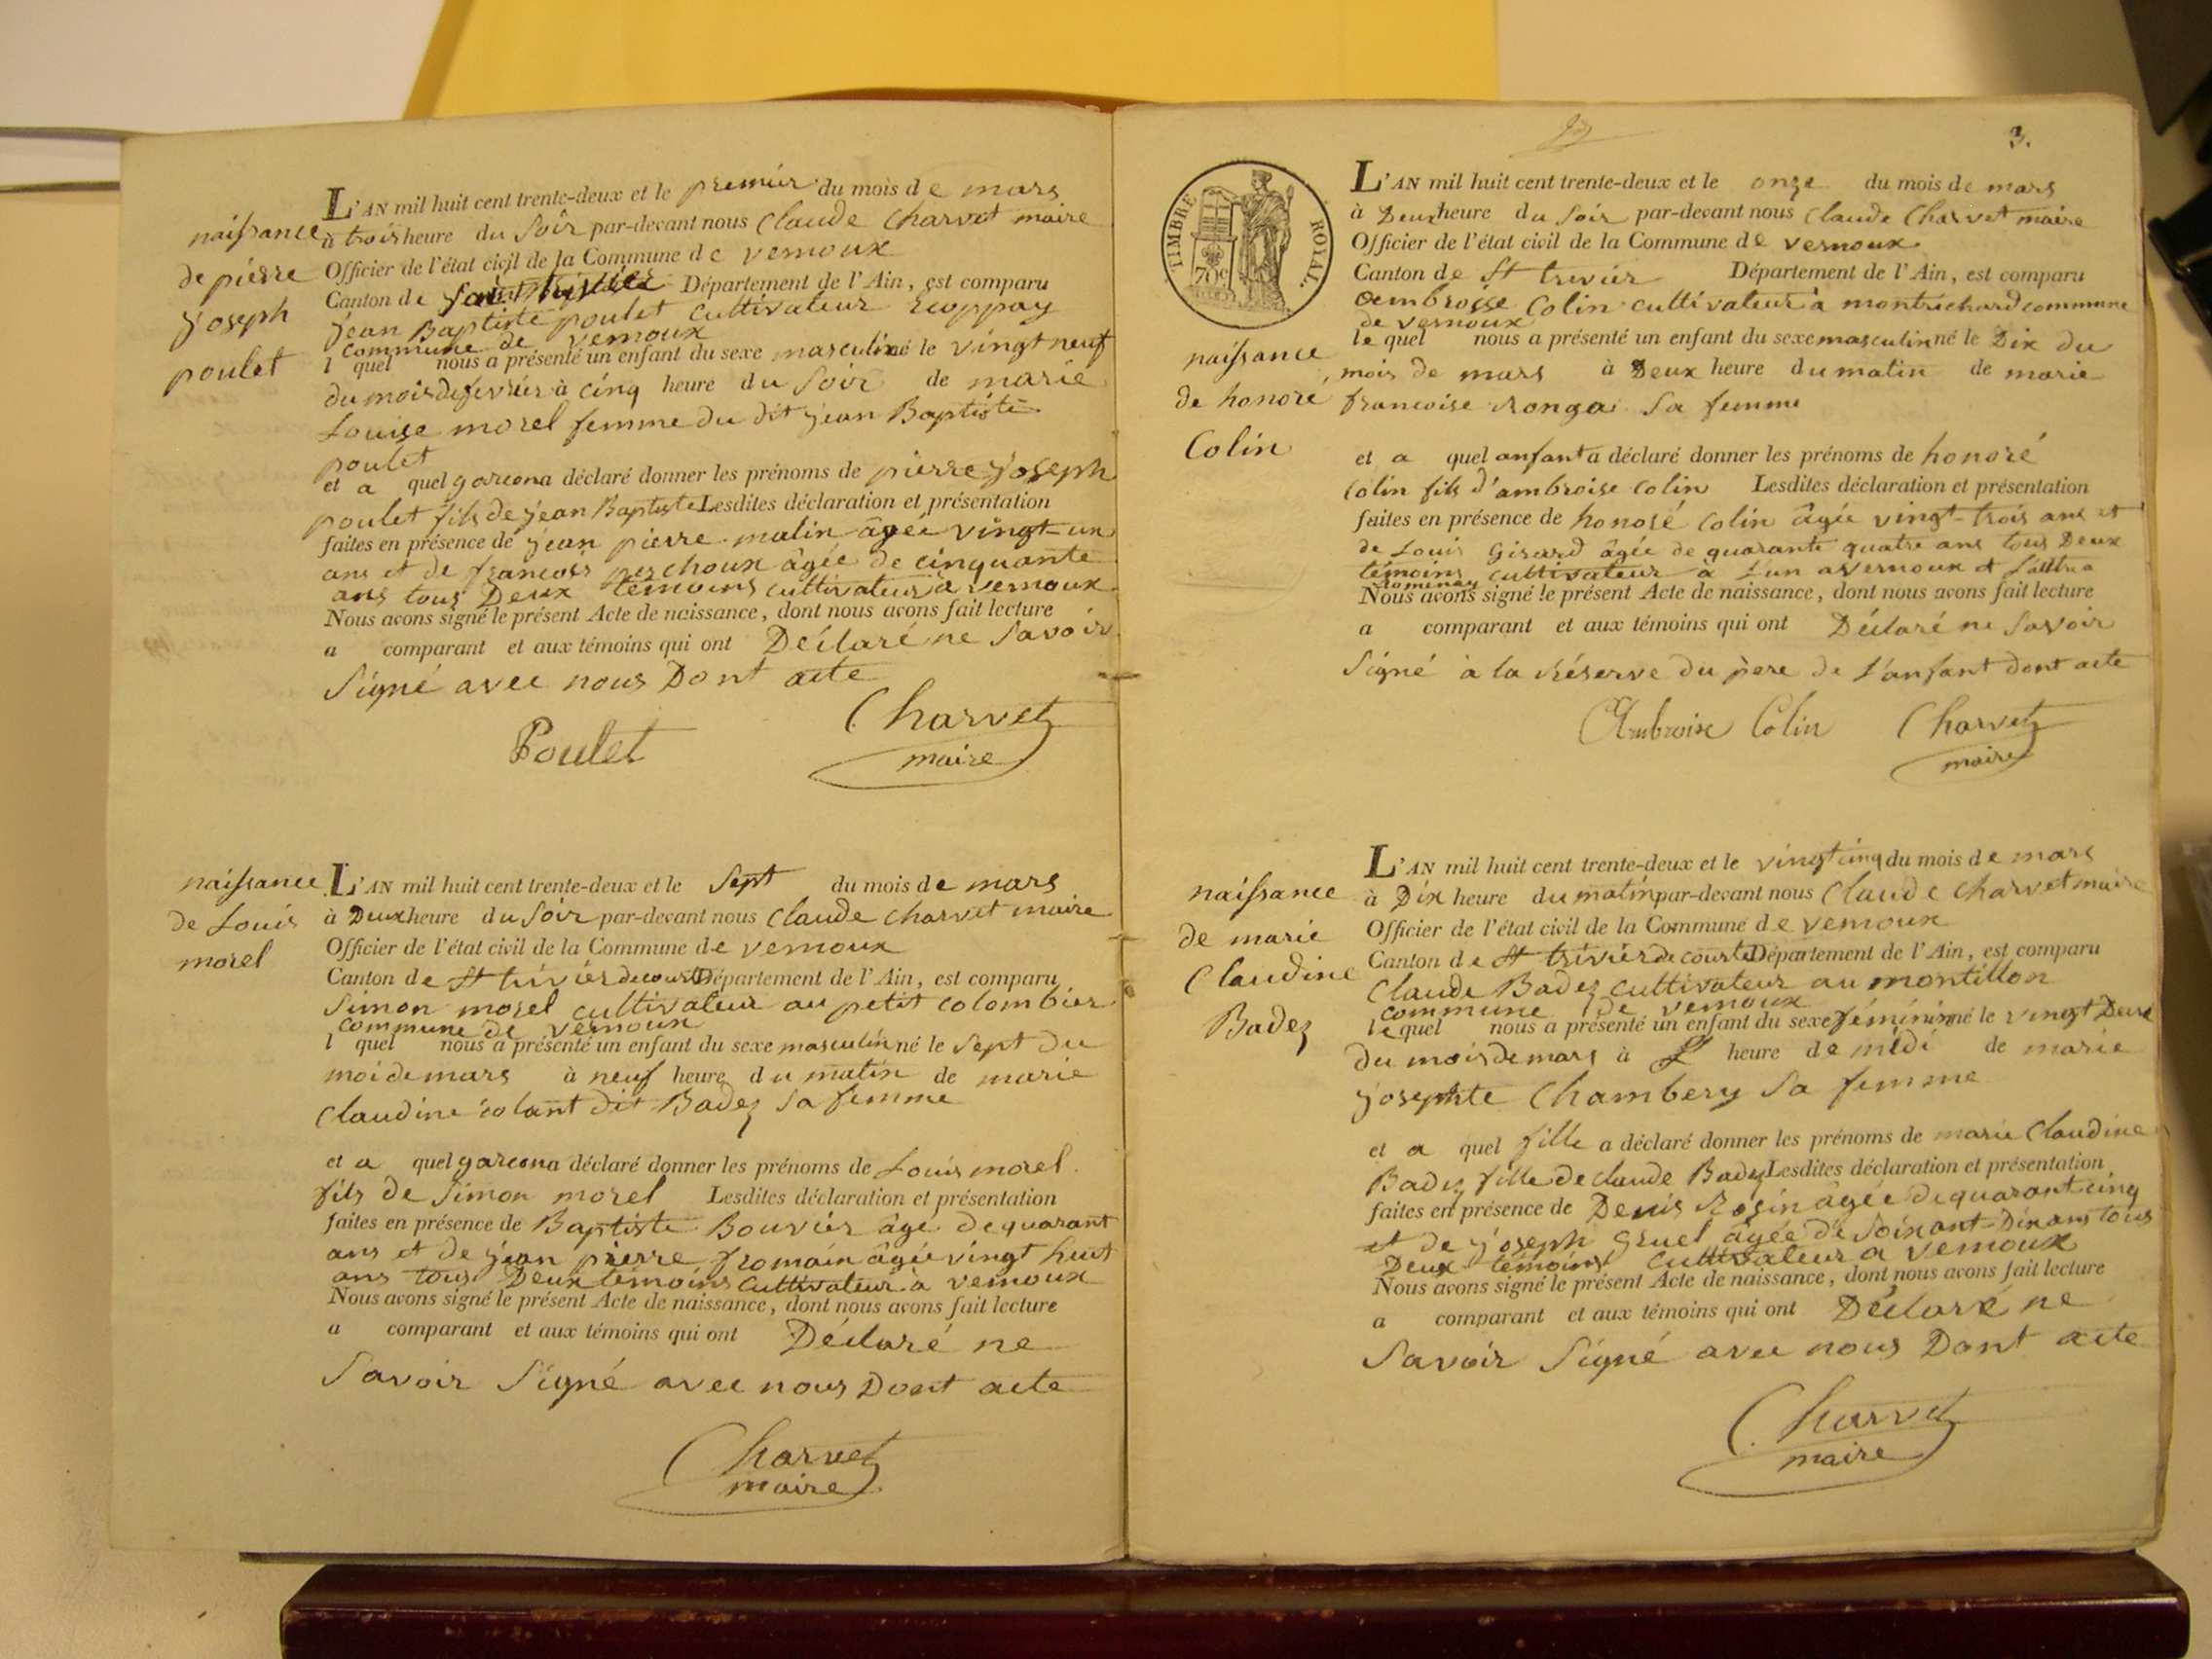 naissance
de pierre
joseph
poulet
L'AN mil huit cent trente-deux et le premier du mois de mars
à trois heure du soir par-devant nous Claude Charvet maire
Officier de l'état civil de la Commune de vernoux
Canton de saint trivier Département de l'Ain, est comparu
jean Baptiste poulet cultivateur
commune de vernoux
l quel nous a présenté un enfant du sexe masculin né le vingt neuf
du mois de fevrier à cinq heure du soir de marie
Louise morel femme du dit jean Baptiste
poulet
et a quel garcon a déclaré donner les prénoms de pierre joseph
poulet fils de jean Baptiste Lesdites déclaration et présentation
faites en présence de jean pierre mulin âgée vingt-un
ans et de francois perchoux âgée de cinquante
ans tous Deux témoins cultivateur à vernoux
Nous avons signé le présent Acte de naissance, dont nous avons fait lecture
a comparant et aux témoins qui ont Déclaré ne savoir
signé avec nous Dont acte
Poulet Charvet
maire
naissance
de Louis
morel
L'AN mil huit cent trente-deux et le sept du mois de mars
à Deux heure du soir par-devant nous Claude Charvet maire
Officier de l'état civil de la Commune de vernoux
Canton de St trivier de courte Département de l'Ain, est comparu
Simon morel cultivateur au petit colombier
commune de vernoux
l quel nous a présenté un enfant du sexe masculin né le sept du
moi de mars à neuf heure du matin de marie
Claudine colant dit Badez sa femme
et a quel garcon a déclaré donner les prénoms de Louis morel
fils de simon morel Lesdites déclaration et présentation
faites en présence de Baptiste Bouvier âgé de quarant
ans et de jean pierre fromain âgée vingt huit
ans tous Deux témoins cultivateur à vernoux
Nous avons signé le présent Acte de naissance, dont nous avons fait lecture
a comparant et aux témoins qui ont Déclaré ne
savoir signé avec nous Dont acte
Charvet
maire
3.
TIMBRE ROYAL.
70c
naissance
de honoré
Colin
L'AN mil huit cent trente-deux et le onze du mois de mars
à Deux heure du soir par-devant nous Claude Charvet maire
Officier de l'état civil de la Commune de vernoux
Canton de St trivier Département de l'Ain, est comparu
ambroise Colin cultivateur à montrichard commune
de vernoux
le quel nous a présenté un enfant du sexe masculin né le Dix du
mois de mars à Deux heure du matin de marie
francoise Ronga sa femme
et a quel anfant a déclaré donner les prénoms de honoré
Colin fils d'ambroise Colin Lesdites déclaration et présentation
faites en présence de honoré Colin âgée vingt-trois ans et
de Louis Girard âgée de quarante quatre ans tous Deux
témoins cultivateur à l'un a vernoux et l'autre a
romenay
Nous avons signé le présent Acte de naissance, dont nous avons fait lecture
a comparant et aux témoins qui ont Déclaré ne savoir
signé à la réserve du père de l'anfant dont acte
Ambroise Colin Charvet
maire
naissance
de marie
Claudine
Badez
L'AN mil huit cent trente-deux et le vingt cinq du mois de mars
à Dix heure du matin par-devant nous Claude Charvet maire
Officier de l'état civil de la Commune de vernoux
Canton de St trivier de courte Département de l'Ain, est comparu
Claude Badez cultivateur au montillon
commune de vernoux
le quel nous a présenté un enfant du sexe féminin né le vingt Deux
du mois de mars à heure de midi de marie
josephte Chambery sa femme
et a quel fille a déclaré donner les prénoms de marie Claudine
Badez fille de claude Badez Lesdites déclaration et présentation
faites en présence de Denis Rosin âgée de quarant cinq
et de joseph Gruel âgée de soixant-Dix ans tous
Deux témoins cultivateur a vernoux
Nous avons signé le présent Acte de naissance, dont nous avons fait lecture
a comparant et aux témoins qui ont Déclaré ne
savoir signé avec nous Dont acte
Charvet
maire